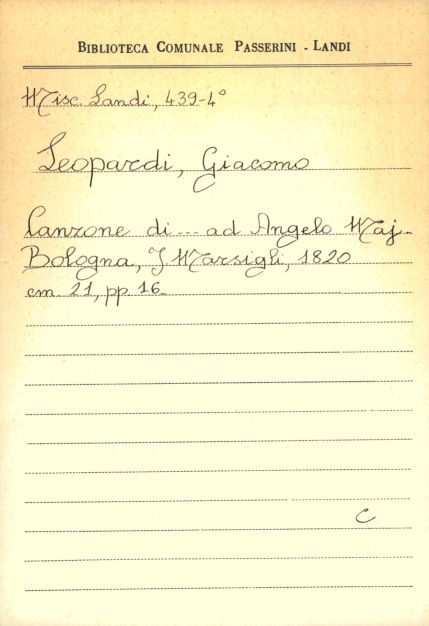 BIBLIOTECA COMUNALE PASSERINI - LANDI
Misc. Landi, 439-4°
Leopardi, Giacomo
Canzone di --- ad Angelo Maj-
Bologna, J Marsigli, 1820
cm. 21, pp. 16-
C